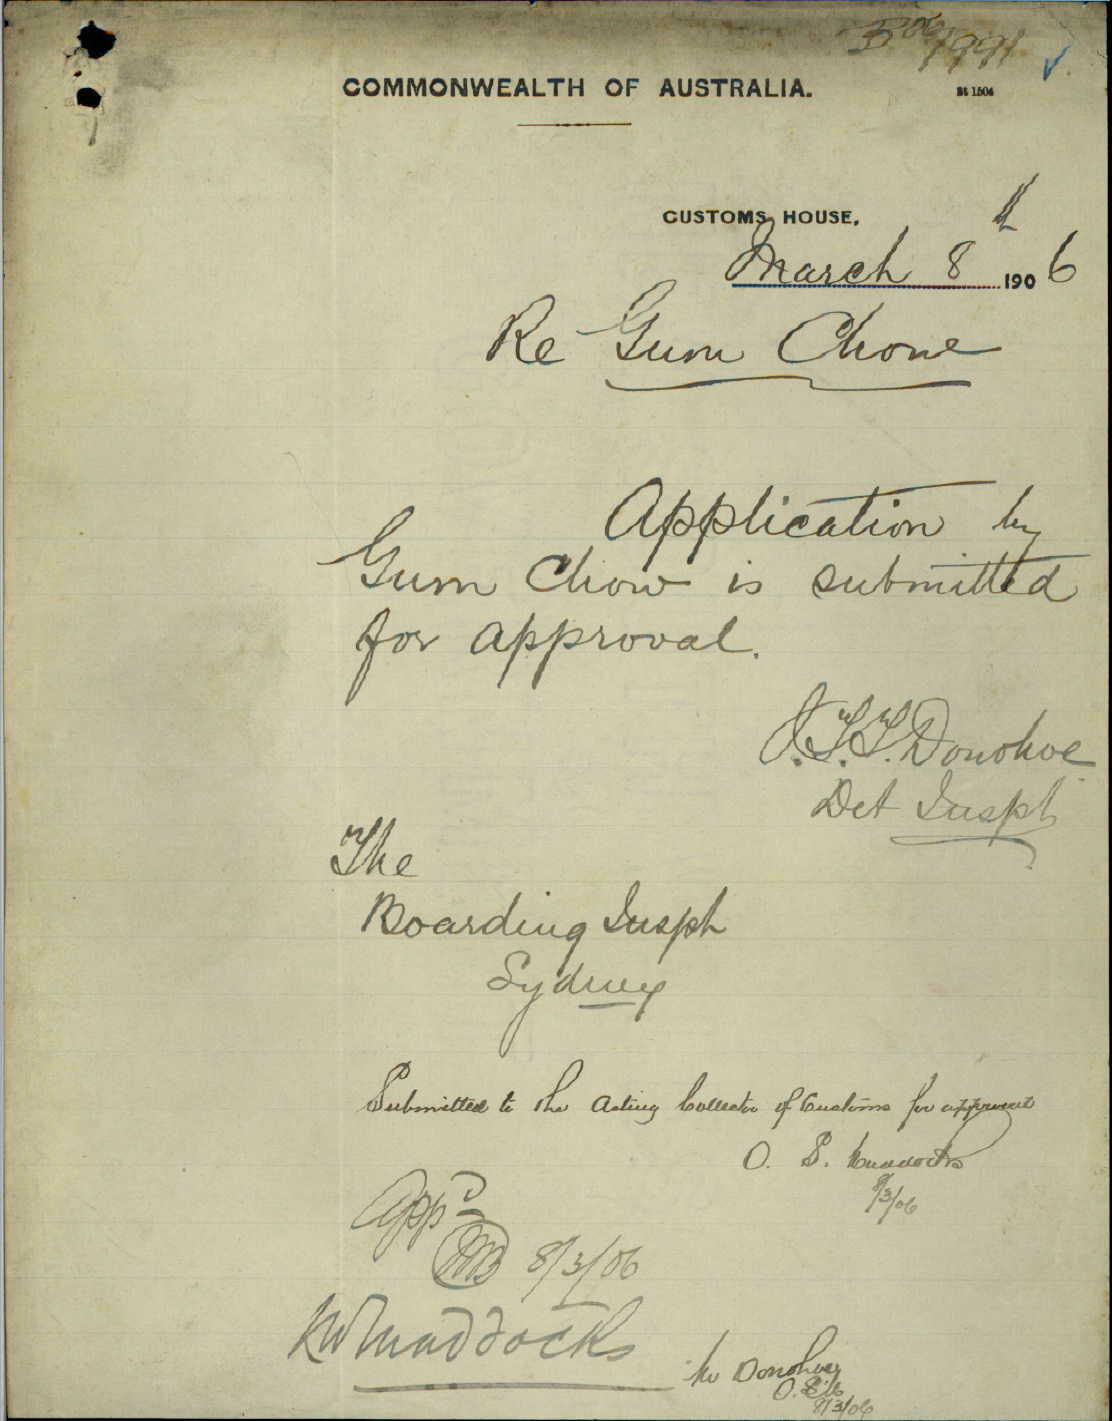 B06/1991
COMMONWEALTH OF AUSTRALIA.
St 1504
CUSTOMS HOUSE,
March 8th 1906
Re Gum Chow
Application by
Gum Chow is submitted
for approval.
J.T.T. Donohoe
Det Inspr
The
Boarding Inspr
Sydney
Submitted to the Acting Collector of Customs for approval
O. S. Maddocks
8/3/06
Appd
8/3/06
Mr Maddocks
Mr Donohoe
8/3/06